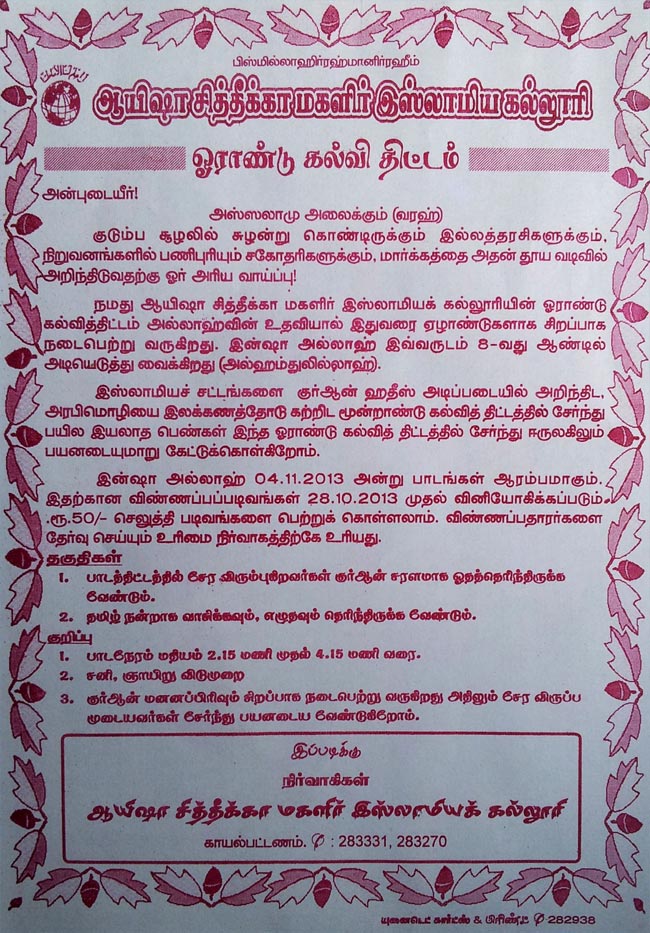 பிஸ்மில்லாஹிர்ரஹ்மானிர்ரஹீம்
ஆயிஷா சித்தீக்கா மகளிர் இஸ்லாமிய கல்லூரி
ஓராண்டு கல்வி திட்டம்
அன்புடையீர்!
அஸ்ஸலாமு அலைக்கும் (வரஹ்)
குடும்ப சூழலில் சுழன்று கொண்டிருக்கும் இல்லத்தரசிகளுக்கும்,
நிறுவனங்களில் பணிபுரியும் சகோதரிகளுக்கும், மார்க்கத்தை அதன் தூய வடிவில்
அறிந்திடுவதற்கு ஓர் அரிய வாய்ப்பு!
நமது ஆயிஷா சித்தீக்கா மகளிர் இஸ்லாமியக் கல்லூரியின் ஓராண்டு
கல்வித்திட்டம் அல்லாஹ்வின் உதவியால் இதுவரை ஏழாண்டுகளாக சிறப்பாக
நடைபெற்று வருகிறது. இன்ஷா அல்லாஹ் இவ்வருடம் 8-வது ஆண்டில்
அடியெடுத்து வைக்கிறது (அல்ஹம்துலில்லாஹ்).
இஸ்லாமியச் சட்டங்களை குர்ஆன் ஹதீஸ் அடிப்படையில் அறிந்திட,
அரபிமொழியை இலக்கணத்தோடு கற்றிட மூன்றாண்டு கல்வித் திட்டத்தில் சேர்ந்து
பயில இயலாத பெண்கள் இந்த ஓராண்டு கல்வித் திட்டத்தில் சேர்ந்து ஈருலகிலும்
பயனடையுமாறு கேட்டுக்கொள்கிறோம்.
இன்ஷா அல்லாஹ் 04.11.2013 அன்று பாடங்கள் ஆரம்பமாகும்.
இதற்கான விண்ணப்பப்படிவங்கள் 28.10.2013 முதல் வினியோகிக்கப்படும்.
.ரூ.50/- செலுத்தி படிவங்களை பெற்றுக் கொள்ளலாம். விண்ணப்பதாரர்களை
தேர்வு செய்யும் உரிமை நிர்வாகத்திற்கே உரியது.
தகுதிகள்
1. பாடத்திட்டத்தில் சேர விரும்புகிறவர்கள் குர்ஆன் சரளமாக ஓதத்தெரிந்திருக்க
வேண்டும்.
2. தமிழ் நன்றாக வாஜிக்கவும், எழுதவும் தெரிந்திருக்க வேண்டும்.
குறிப்பு
1. பாடநேரம் மதியம் 2.15 மணி முதல் 4.15 மணி வரை.
2. சனி, ஞாயிறு விடுமுறை
3. குர்ஆன் மனனப்பிரிவும் சிறப்பாக நடைபெற்று வருகிறது அதிலும் சேர விருப்ப
முடையவர்கள் சேர்ந்து பயனடைய வேண்டுகிறோம்.
இப்படிக்கு
நிர்வாகிகள்
ஆயிஷா சித்தீக்கா மகளிர் இஸ்லாமியக் கல்லூரி
காயல்பட்டணம். ✆ : 283331, 283270
யுனைடெட் கார்ட்ஸ் & பிரிண்ட் ✆ 282938